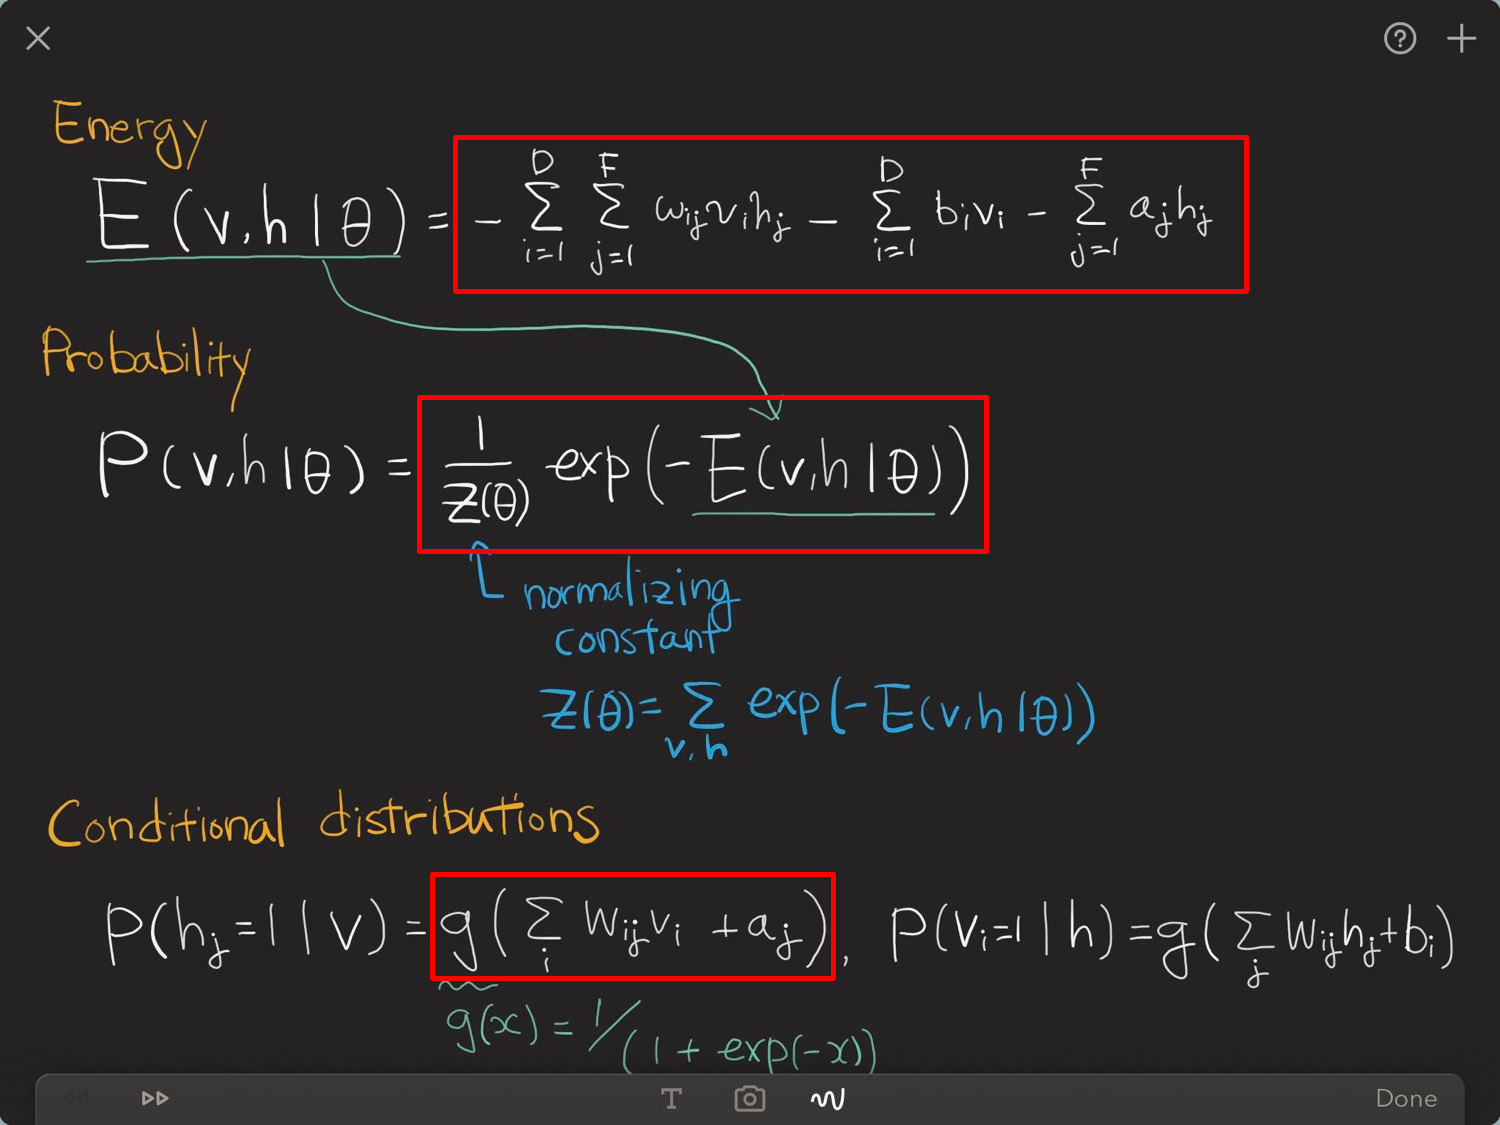 Energy
E(v,h|θ) = - ∑_{i=1}^{D} ∑_{j=1}^{F} w_{ij}v_ih_j - ∑_{i=1}^{D} b_iv_i - ∑_{j=1}^{F} a_jh_j
Probability
P(v,h|θ) = 1/Z(θ) exp(-E(v,h|θ))
normalizing
constant
Z(θ) = ∑_{v,h} exp(-E(v,h|θ))
Conditional distributions
P(h_j=1|v) = g(∑_i W_{ij}v_i + a_j), P(v_i=1|h) = g(∑_j W_{ij}h_j+b_i)
g(x) = 1/(1 + exp(-x))
T Done